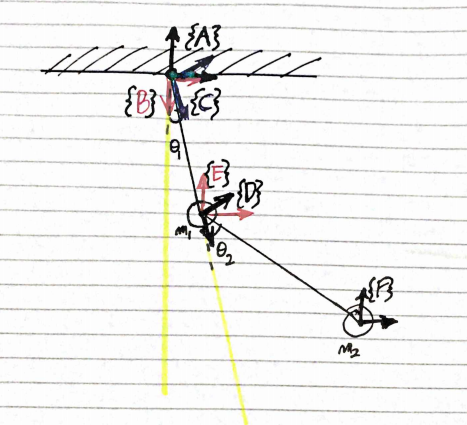 {A}
{B} {C}
θ₁
{E}
{D}
m₁
θ₂
{F}
m₂